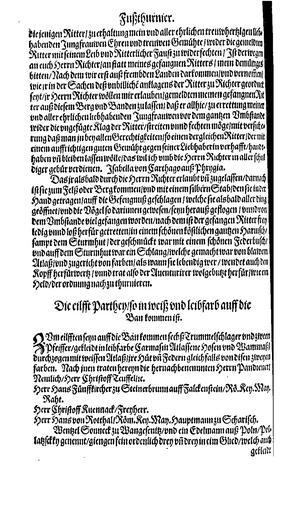 Fußthurnier.
diejenigen Ritter / zu erhaltung mein vnd aller ehrlichen trewhertzigen lieb-
habenden Jungfrauwen Ehren vnd treuwen Gemühts / wider die gemeldten
Ritter mit seinem Leib vnd Ritterlicher Faust zu widerfechten / Ist derwegen
an euch Herrn Richter / an statt meines gefangnen Ritters / mein demütiges
bitten / Nach dem wir erst auß frembden Landen darkommen / vnd vernommen /
wie jr in der Sachen deß
seyt / jr Herrn Richter wöllen mir erlauben / gemeldten meinen gefangnen Rit-
ter auß diesem Berg vnd Banden zu lassen / daß er allhie / zu errettung meiner
vnd aller ehrlichen liebhabenden Jungfrauwen vor dem gantzen Vmbstandt
wider die vngefügte Klag der Ritter / streiten vnd fechten möge / mit versiche-
rung daß man jn bey allen Gerechtigkeiten / so einen dergleichen Ritter / der mit
einem auffrichtigen guten Gemüht gegen seiner Liebhaberin verhafft / handt-
haben vñ bleiben lassen wölle / das will ich vmb die Herrn Richter in aller schul
diger gebür verdienen. Isabella von Carthago auß Phrygia.
Das jr alsbald durch die Herrn Richter erlaubt vñ zugelassen / darnach
ist sie zum Felß oder Berg kommen / vnd mit einem silbern Stab / den sie in der
Hand getragen / auff die Gefengnuß geschlagen / welche sie alsbald aller ding
geöffnet / vnd die Vögel so darinnen gewesen / seyn herauß geflogen / vnd von
dem Vmbstande viel gefangen worden / nach dem ist der gefangen Ritter frey
ledig vnd loß herfür getretten / in einem schönen köstlichen gantzen Harnisch /
sampt dem Sturmhut / der geschmückt war mit einem schönen Federbusch /
vnd auff dem Sturmhut war ein Schlang / welche gemacht war von blawen
Atlaß / vnd zugericht von farben / als wann sie lebendig wer / wendet auch den
Kopff herfürwertz / vnnd trat also der Auenturirer wolgebutzt herfür / wie ein
Held / der ordnung nach zu thurnieren.
Die eilfft Parthey / so in weiß vnd leibfarb auff die
Ban kommen ist.
ZVm eilfften seyn auff die Ban kommen sechß Trummelschlager vnd zween
Pfeiffer / gekleidt in leibfarbe Carmasin Atlassene Hosen vnd Wammaß /
durchzogen mit weissem Atlaß / jre Hüt vñ Federn gleichfalls von diesen zweyen
farben. Nach jnen traten herein die hernachbenennten Herrn Pandierer /
Nemlich / Herr Christoff Teuffel / ꝛc.
Herr Hans Fünffkircher zu Steinerbrunn auff Falckenstein / Rö. Key. May.
Raht.
Herr Christoff Kuennack / Freyherr.
Herr Hans von Rotthal / Röm. Key. May. Hauptmann zu Scharisch.
Wentzel Sonneck zu Wangesenitz / vnd ein Edelmann auß Poln /
genennt / giengen sein ordenlich drey vñ drey in eim Glied / welch auch
gekleidt